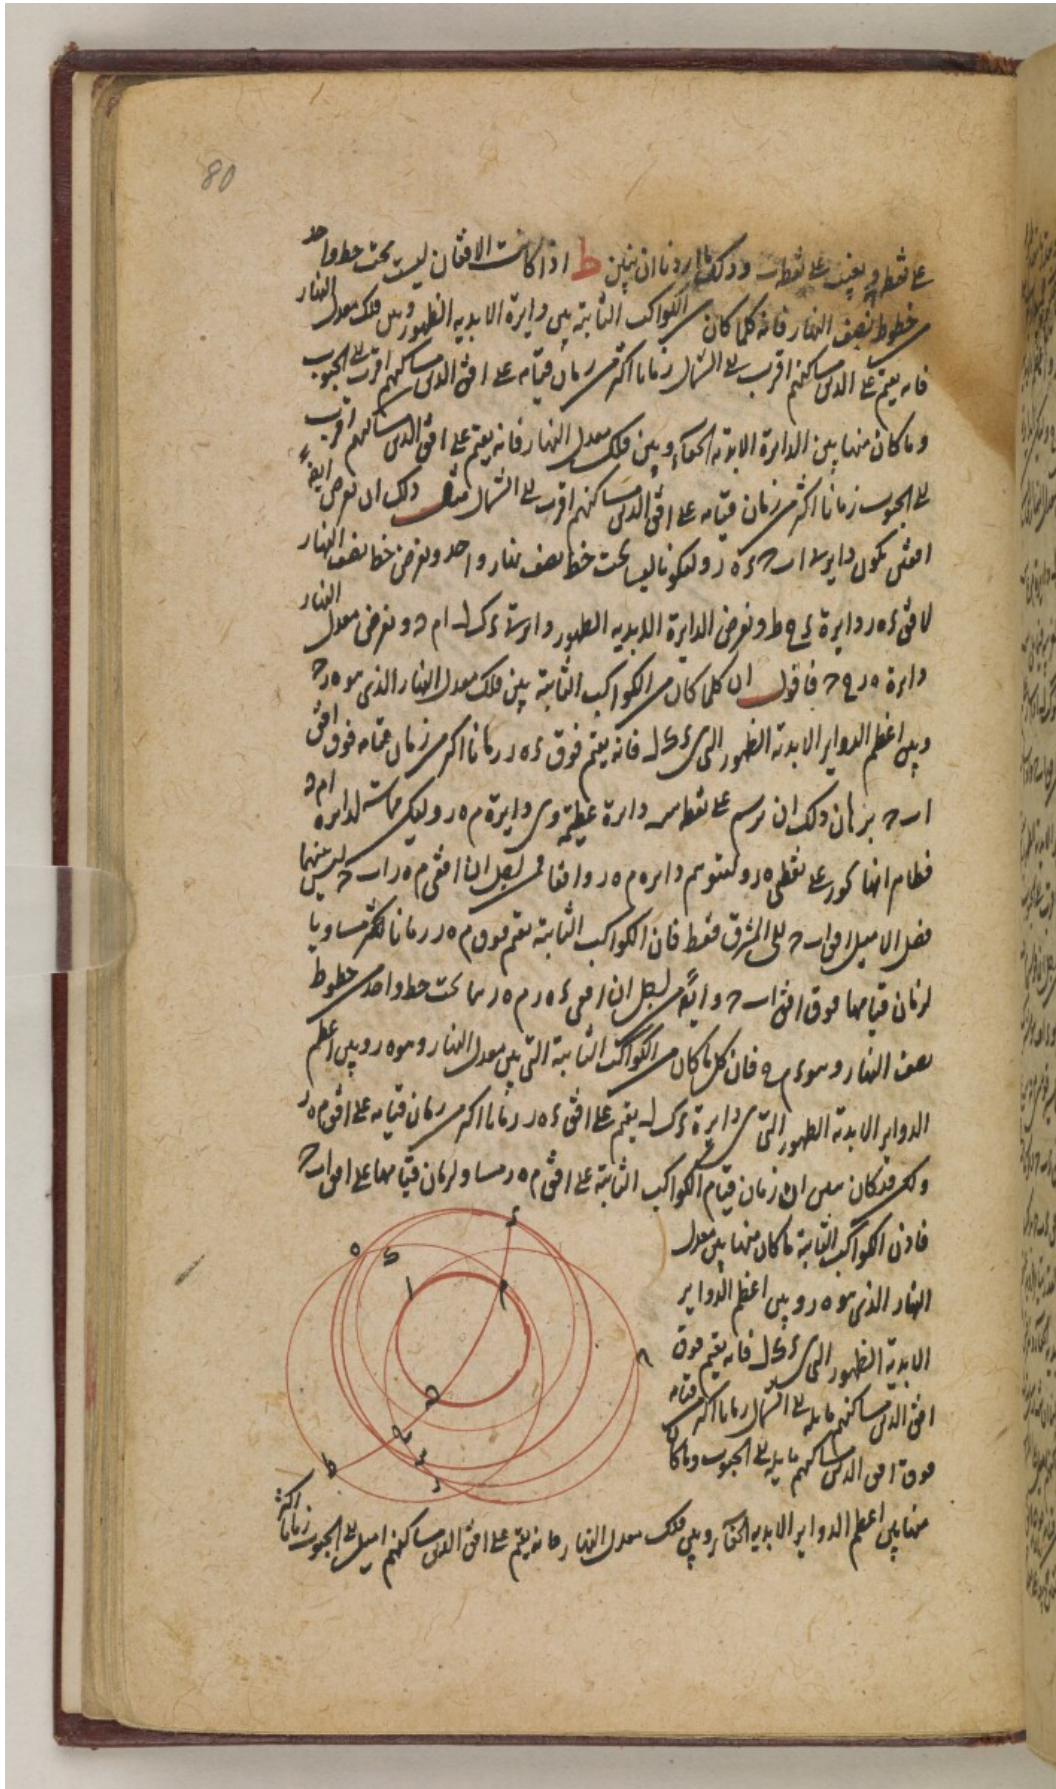 80
على نقطة ويغيب على نقطة وذلك ما اردنا ان نبين ط اذا كانت الافقان ليست تحت خط واحد
من خطوط نصف النهار فانه كلما كان من الكواكب الثابتة بين دايرة الابدية الظهور وبين فلك معدل النهار
فانه يقيم على الذين مساكنهم اقرب الى الشمال زمانا اكثر من زمان قيامه على افق الذين مساكنهم اقرب الى الجنوب
وما كان منها بين الدايرة الابدية الخفاء وبين فلك معدل النهار فانه يقيم على افق الذين مساكنهم اقرب
الى الجنوب زمانا اكثر من زمان قيامه على افق الذين مساكنهم اقرب الى الشمال مثال ذلك ان نفرض ايضا
افقى يكون دايرتا اب ح ء ه ر وليكونا ليسا تحت خط نصف نهار واحد ونفرض خط نصف النهار
لافق ء ه ر دايرة ء ح ط ونفرض الدايرة الابدية الظهور دايرتا ء ك ل ام د ونفرض معدل النهار
دايرة ه ر ح فاقول ان كلما كان من الكواكب الثابتة بين فلك معدل النهار الذى هو ه ر ح
وبين اعظم الدواير الابدية الظهور التى هى ء ك ل فانه يقيم فوق ء ه ر زمانا اكثر من زمان قيامه فوق افق
اب ح برهان ذلك ان نرسم على نقطة دايرة عظيمة وهى دايرة م ه ر وليكن مماسة لدايرة ام د
فظاهر انها تجوز على نقطتى ه ر ولنتوهم دايرة م ه ر وافقا فمن اجل ان افقى م ه ر اب ح ليس بينهما
فضل الا ميل افق اب ح الى المشرق فقط فان الكواكب الثابتة تقيم فوق م ه ر زمانا مساويا
لزمان قيامها فوق افق اب ح وايضا من اجل ان افقى ء ه ر م ه ر هما تحت خط واحد من خطوط
نصف النهار وهو ء م ح فان كل ما كان من الكواكب الثابتة التى بين معدل النهار وهو ه ر وبين اعظم
الدواير الابدية الظهور التى هى دايرة ء ك ل يقيم على افق ء ه ر زمانا اكثر من زمان قيامه على افق م ه ر
ولكن قد كان تبين ان زمان قيام الكواكب الثابتة على افق م ه ر مساو لزمان قيامها على افق اب ح
فاذن الكواكب الثابتة ما كان منها بين معدل
النهار الذى هو ه ر وبين اعظم الدواير
الابدية الظهور التى هى ء ك ل فانه يقيم فوق
افق الذين مساكنهم مايلة الى الشمال زمانا اكثر من قيامه
فوق افق الذين مساكنهم مايلة الى الجنوب وما كان
منها بين اعظم الدواير الابدية الخفاء وبين فلك معدل النهار فانه يقيم على افق الذين مساكنهم اميل الى الجنوب زمانا اكثر
ء
ه
ك
ا
م
ح
د
ط
ر